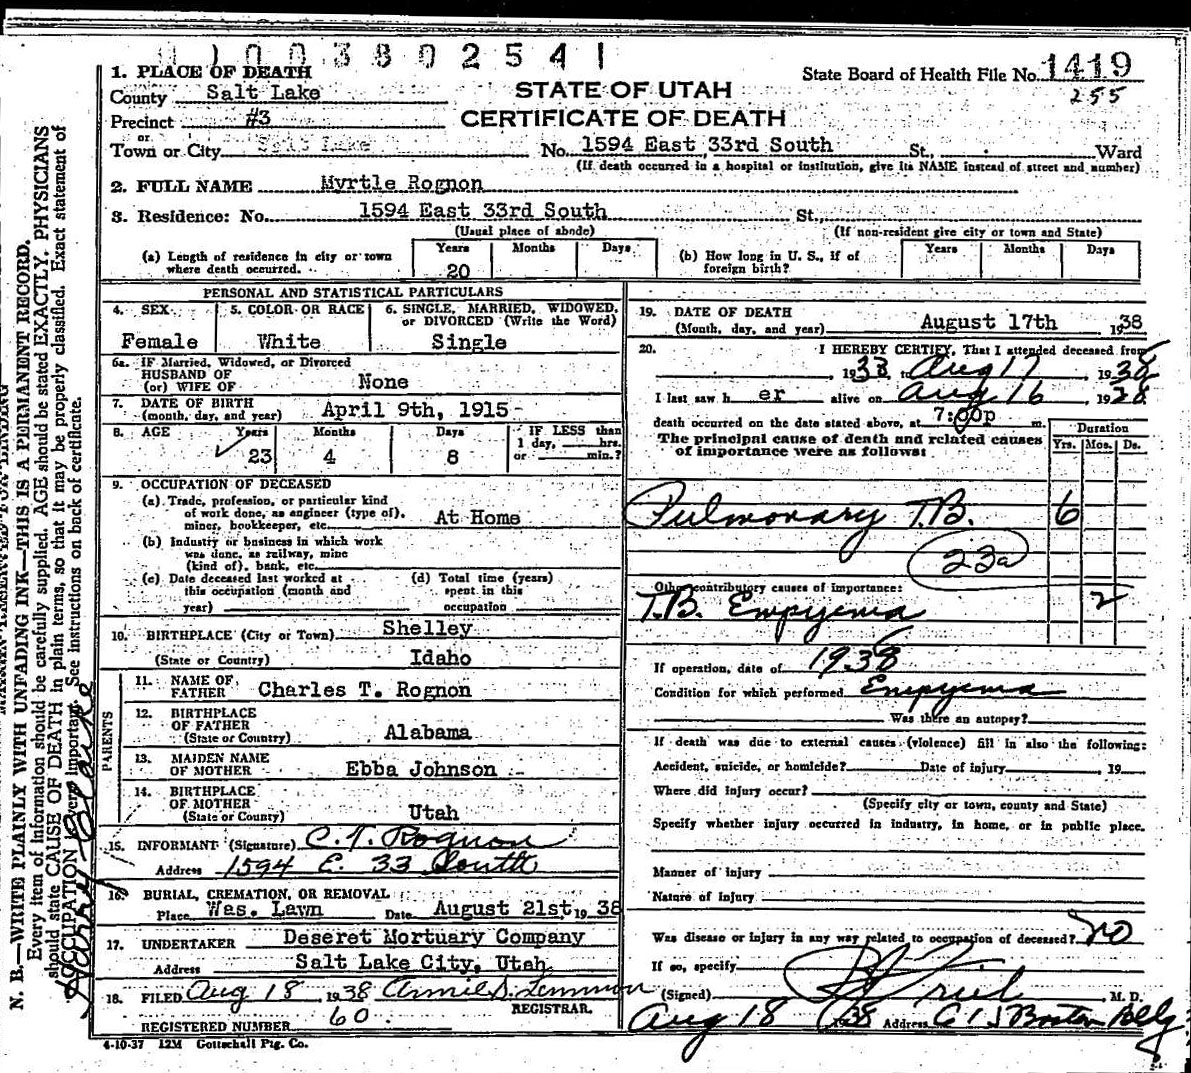 01003802541
1. PLACE OF DEATH
County Salt Lake
Precinct #3
or
Town or City Salt Lake
STATE OF UTAH
CERTIFICATE OF DEATH
State Board of Health File No. 1419
255
No. 1594 East 33rd South St., Ward
(If death occurred in a hospital or institution, give its NAME instead of street and number)
2. FULL NAME Myrtle Rognon
3. Residence: No. 1594 East 33rd South St.,
(Usual place of abode) (If non-resident give city or town and State)
(a) Length of residence in city or town where death occurred. Years 20 Months Days
(b) How long in U. S., if of foreign birth? Years Months Days
PERSONAL AND STATISTICAL PARTICULARS
4. SEX Female
5. COLOR OR RACE White
6. SINGLE, MARRIED, WIDOWED, or DIVORCED (Write the Word) Single
6a. IF Married, Widowed, or Divorced
HUSBAND OF
(or) WIFE OF None
7. DATE OF BIRTH
(month, day, and year) April 9th, 1915
8. AGE Years 23 Months 4 Days 8 IF LESS than 1 day, hrs. or min.?
9. OCCUPATION OF DECEASED
(a) Trade, profession, or particular kind
of work done, as engineer (type of),
miner, bookkeeper, etc. At Home
(b) Industry or business in which work
was done, as railway, mine
(kind of), bank, etc.
(c) Date deceased last worked at this occupation (month and year)
(d) Total time (years) spent in this occupation
10. BIRTHPLACE (City or Town) Shelley
(State or Country) Idaho
PARENTS
11. NAME OF FATHER Charles T. Rognon
12. BIRTHPLACE OF FATHER (State or Country) Alabama
13. MAIDEN NAME OF MOTHER Ebba Johnson
14. BIRTHPLACE OF MOTHER (State or County) Utah
15. INFORMANT (Signature) C. T. Rognon
Address 1594 E. 33 South
16. BURIAL, CREMATION, OR REMOVAL
Place Was. Lawn Date August 21st, 1938
17. UNDERTAKER Deseret Mortuary Company
Address Salt Lake City, Utah
18. FILED Aug 18 1938
REGISTRAR.
REGISTERED NUMBER 60
4-10-37 12M Gottschall Ptg. Co.
19. DATE OF DEATH
(Month, day, and year) August 17th 1938
20. I HEREBY CERTIFY, That I attended deceased from
1933, to Aug 17 1938
I last saw h er alive on Aug 16, 1938
death occurred on the date stated above, at 7:00p m.
The principal cause of death and related causes
of importance were as follows:
Duration
Yrs. Mos. Ds.
Pulmonary T.B. 6
23a
Other contributory causes of importance:
T.B. Empyema 2
If operation, date of 1938
Condition for which performed Empyema
Was there an autopsy?
If death was due to external causes (violence) fill in also the following:
Accident, suicide, or homicide? Date of injury 19
Where did injury occur?
(Specify city or town, county and State)
Specify whether injury occurred in industry, in home, or in public place.
Manner of injury
Nature of injury
Was disease or injury in any way related to occupation of deceased? no
If so, specify
(Signed) M. D.
Aug 18 1938 Address Boston Bldg
N. B.—WRITE PLAINLY WITH UNFADING INK—THIS IS A PERMANENT RECORD.
Every item of information should be carefully supplied. AGE should be stated EXACTLY. PHYSICIANS
should state CAUSE OF DEATH in plain terms, so that it may be properly classified. Exact statement of
OCCUPATION is very important. See instructions on back of certificate.